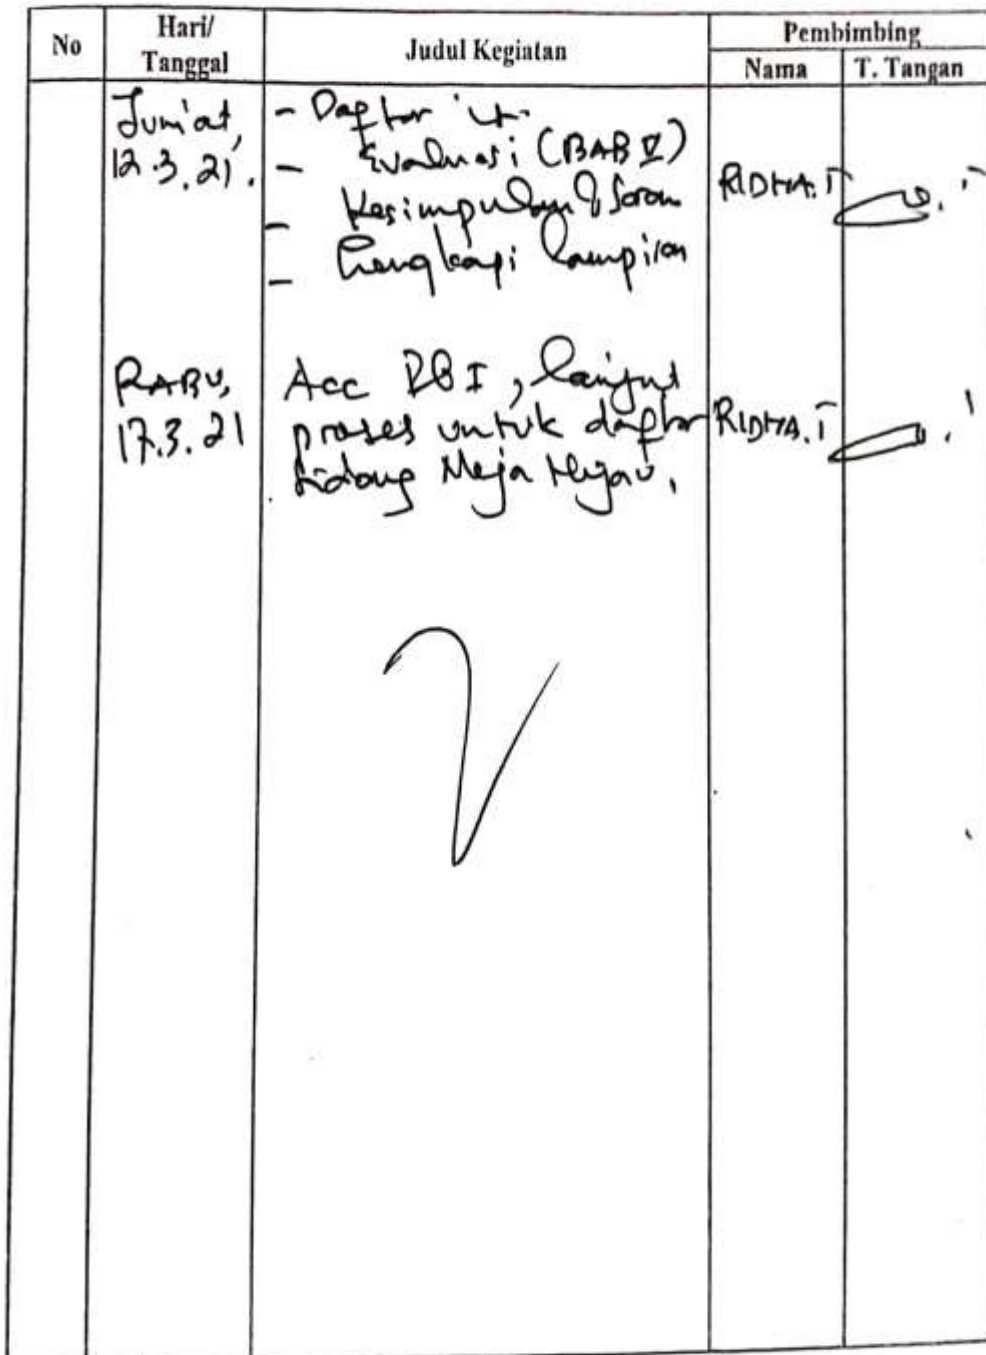 No
Hari/
Tanggal
Judul Kegiatan
Pembimbing
Nama
T. Tangan
Jum'at,
12.3.21.
- Daftar
- Evaluasi (BAB V)
- Kesimpulan & Saran
- Lengkapi Lampiran
RIDHA.T
RABU,
17.3.21
Acc I, lanjut
proses untuk daftar
Sidang Meja Hijau.
RIDHA.T